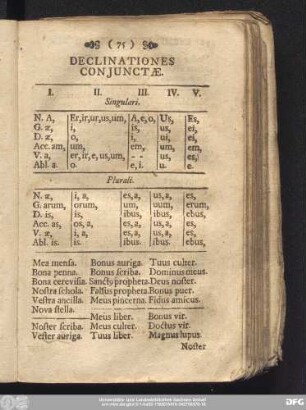 ( 75 )
DECLINATIONES
CONJUNCTÆ.
I. II. III. IV. V.
Singulari.
N. A, Er,ir,ur,us,um, A, e, o, Us, Es,
G. æ, i, is, us, ei,
D. æ, o, i, ui, ei,
Acc. am, um, em, um, em,
V. a, er, ir, e, us, um, - - us, es,
Abl. a. o. e, i. u. e.
Plurali.
N. æ, i, a, es, a, us, a, es,
G. arum, orum, um, uum, erum,
D. is, is, ibus, ibus, ebus,
Acc. as, os, a, es, a, us, a, es,
V. æ, i, a, es, a, us, a, es,
Abl. is. is. ibus. ibus. ebus.
Mea mensa. Bonus auriga. Tuus culter.
Bona penna. Bonus scriba. Dominus meus.
Bona cerevisia. Sanctus propheta. Deus noster.
Nostra schola. Falsus propheta. Bonus puer.
Vestra ancilla. Meus pincerna. Fidus amicus.
Nova stella.
Meus liber. Bonus vir.
Noster scriba. Meus culter. Doctus vir.
Vester auriga. Tuus liber. Magnus lupus.
Noster